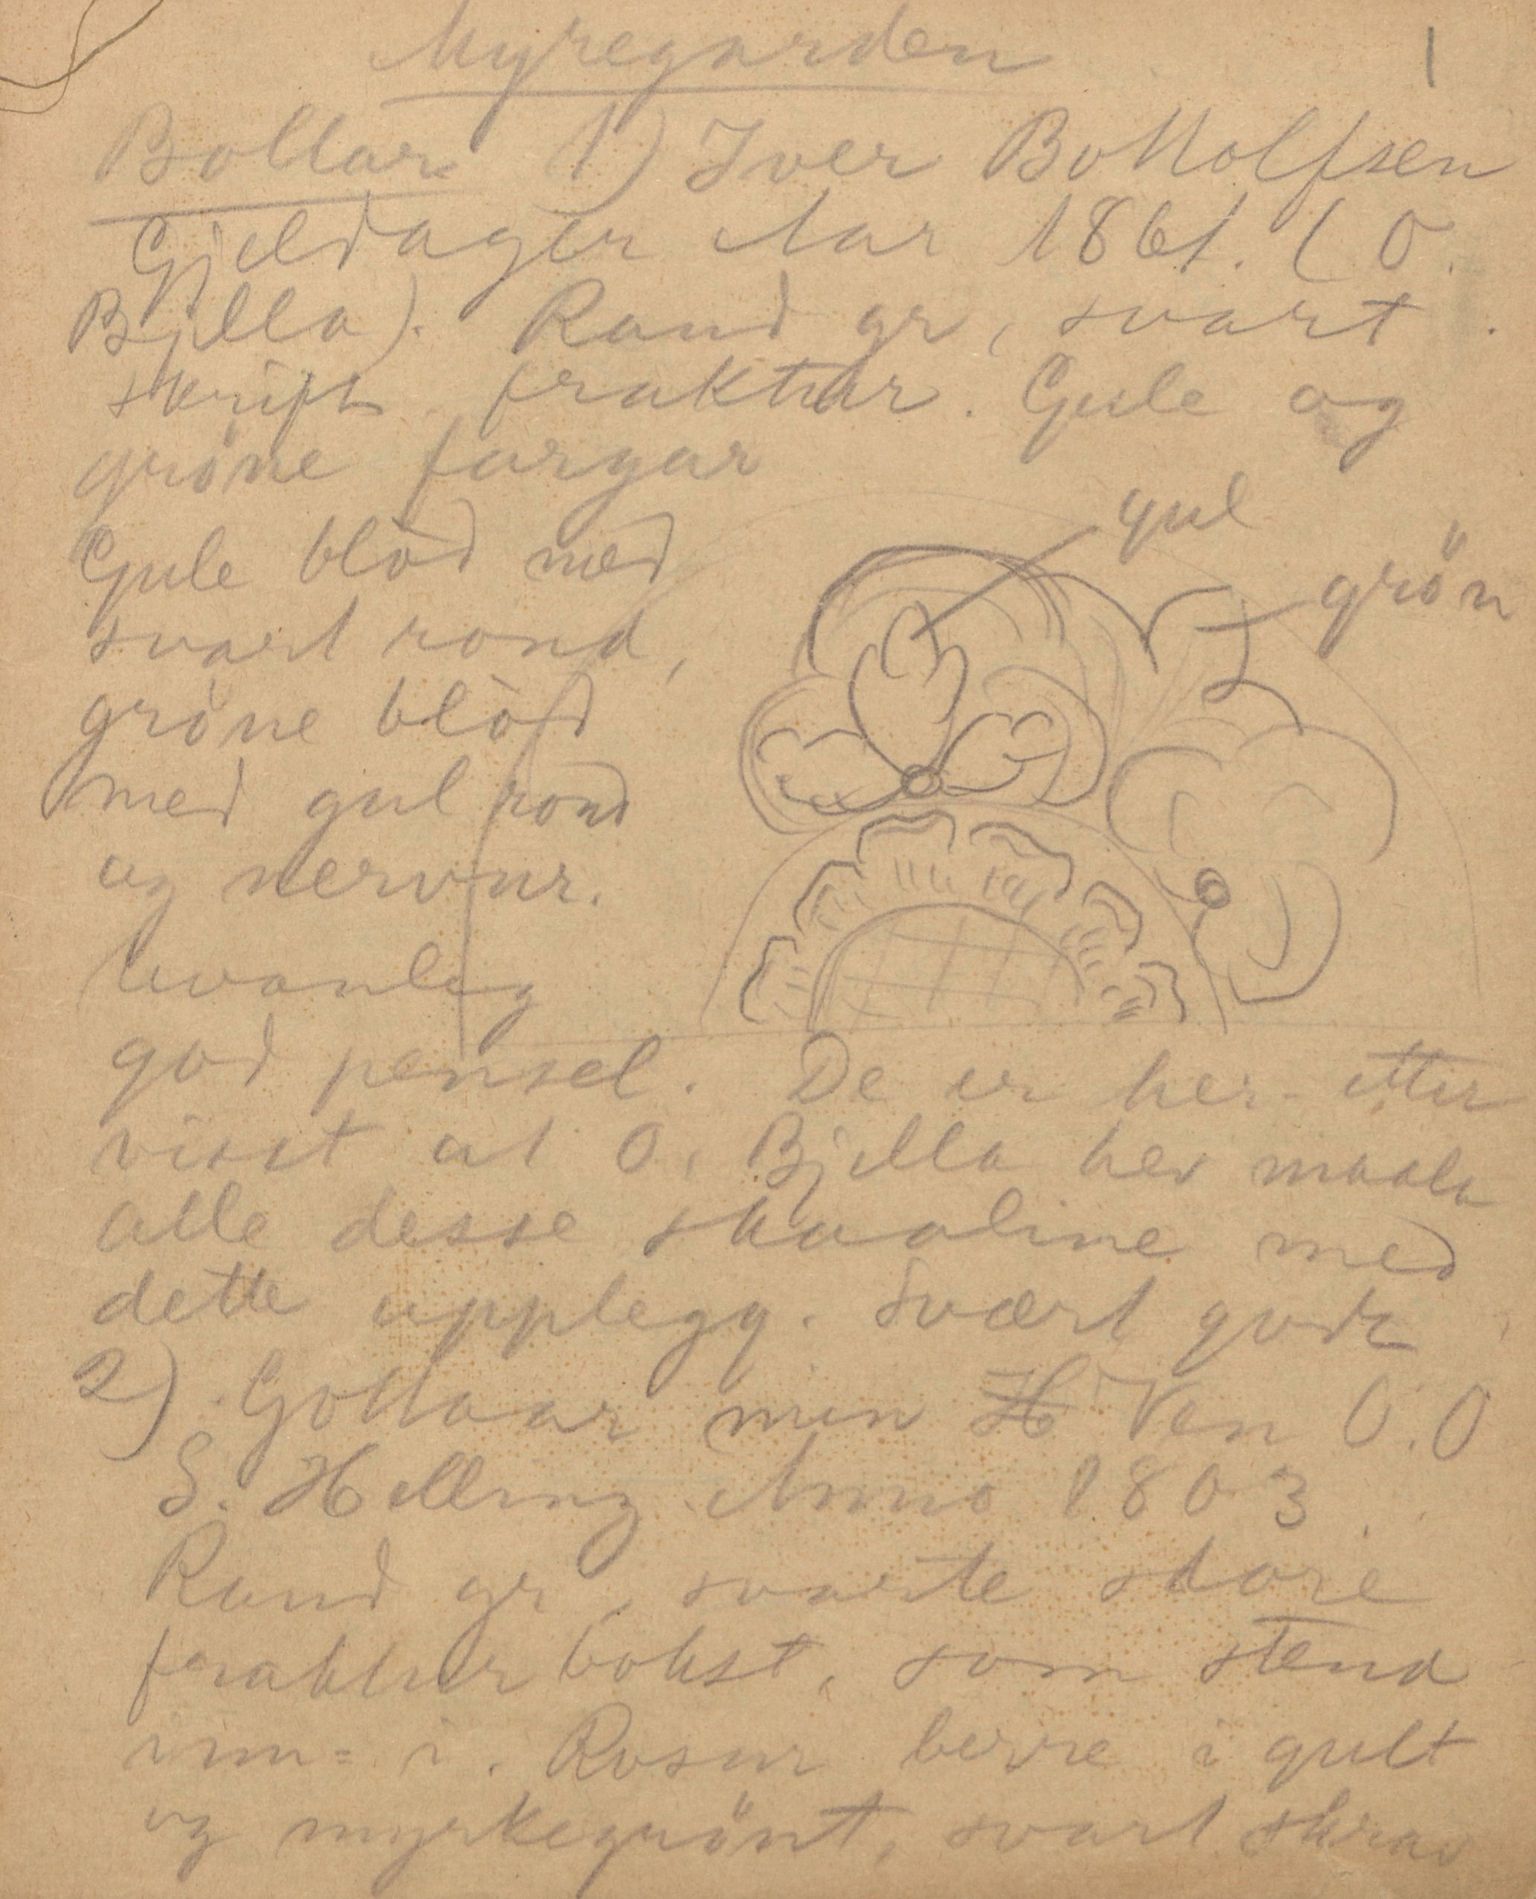 Myregarden
1
Bollar 1) Iver Bottolfsen
Gjeldager Aar 1861. (O.
Bjella). Rand gr, svart
skrift fraktur. Gule og
gröne fargar
gul
grön
Gule blod med
svart rond,
gröne blod
med gul rond
og nervur.
Uvanleg
god pensel. De er her etter
visst at O. Bjella hev maala
alle desse skaaline med
dette upplegg. Svært gode
2) Gottaar min H Ven O.O
S. Helling Anno 1803
Rand gr, svarte store
frakturbokst, som stend
inn= i. Rosur berre i gult
og myrkegrönt, svart skrav